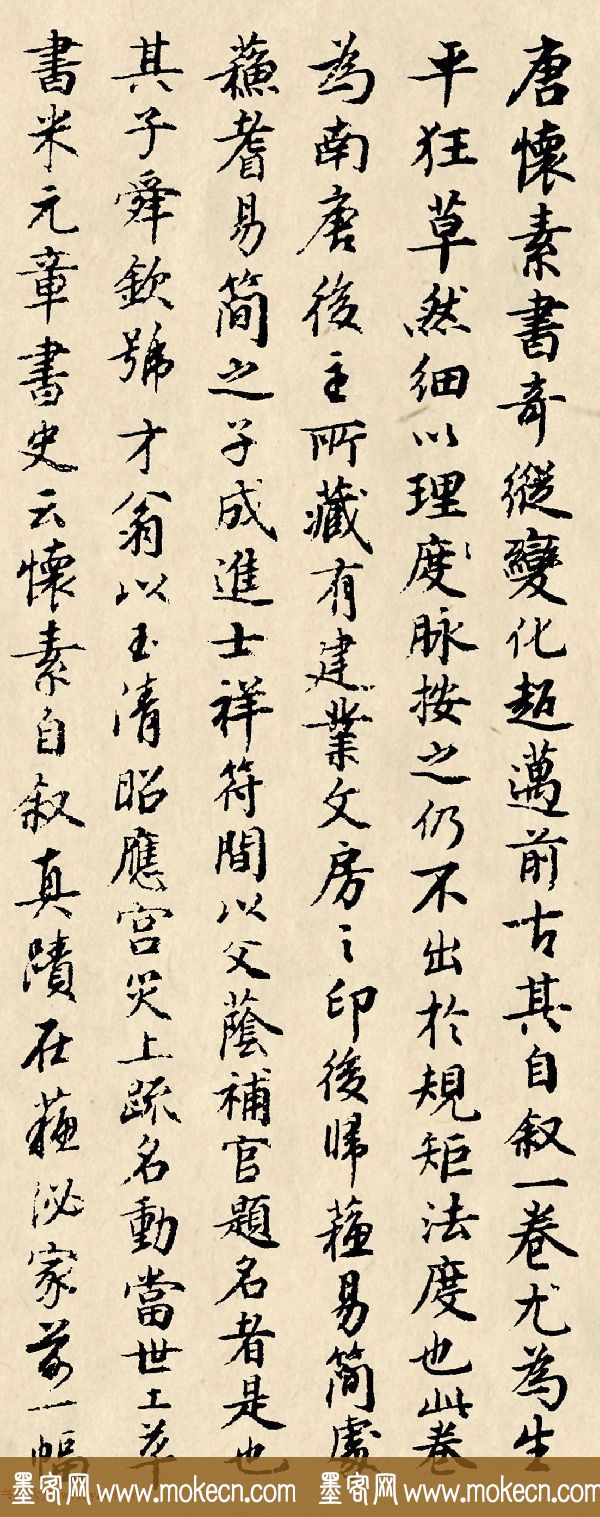 唐懷素書奇縱變化超邁前古其自叙一卷尤為生
平狂草然細以理度脉按之仍不出於規矩法度也此卷
為南唐後主所藏有建業文房之印後歸蘓易簡處
蘓耆易簡之子成進士祥符間以父蔭補官題名者是也
其子舜欽號才翁以玉清昭應宮災上疏名動當世工草
書米元章書史云懷素自叙真蹟在蘓泌家前一幅
墨客网 www.mokecn.com 墨客网 www.mokecn.com